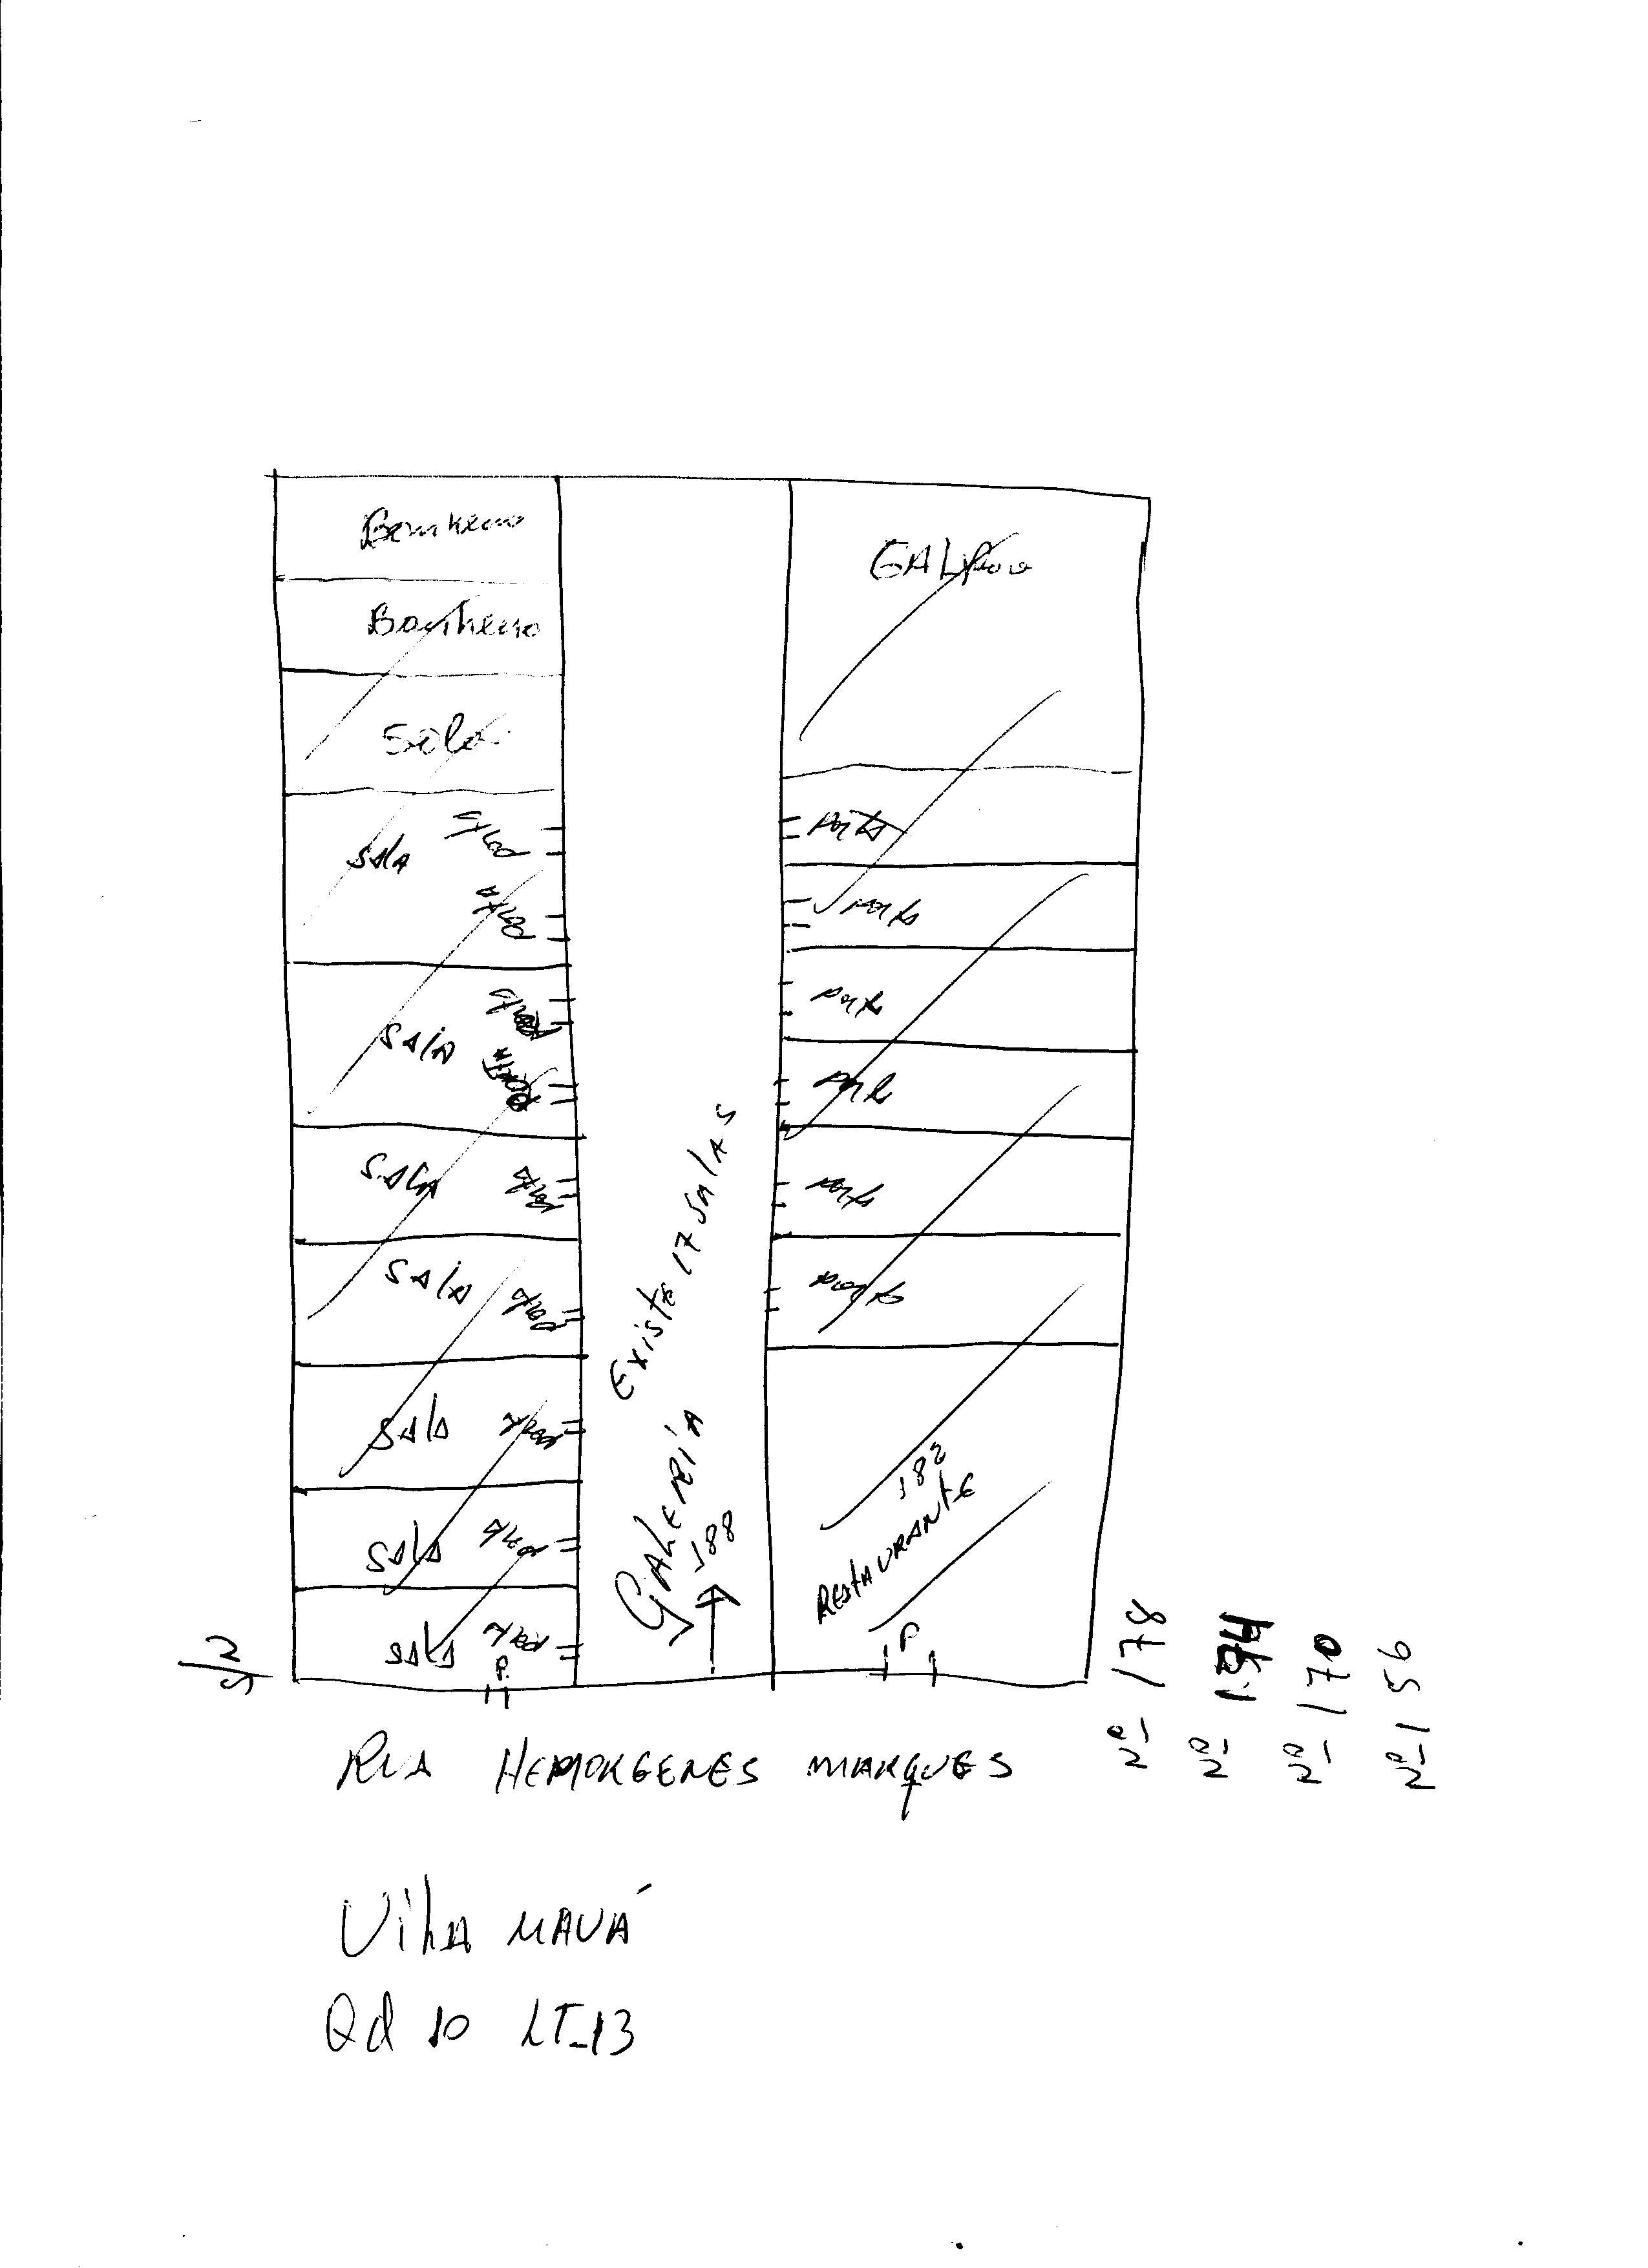 Banheiro
Banheiro
Sala
SALA
Porta
Porta
SALA
Porta
Porta
SALA
Porta
SALA
Porta
SALA
Porta
SALA
Porta
SALA
Porta
P.
S/N
Existe 17 SALAS
GALERIA
188
GALPÃO
porta
porta
porta
porta
porta
182
RESTAURANTE
P
Nº 178
Nº 174
Nº 170
Nº 156
RUA HEMORGENES MARQUES
VILA MAUÁ
Qd 10 LT-13